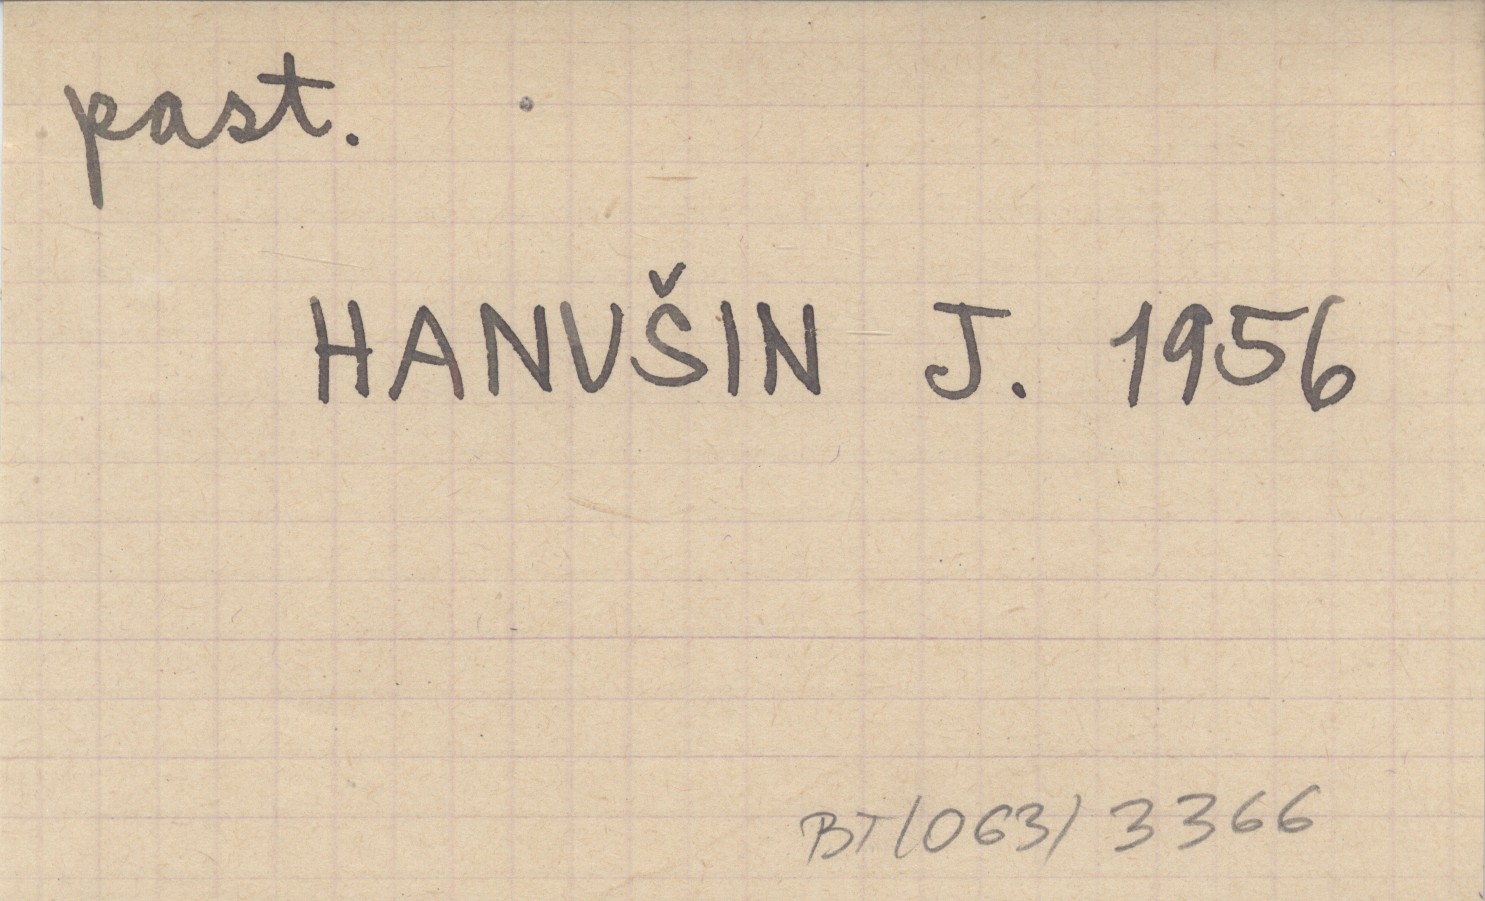 past.
HANUŠIN J. 1956
BT(063) 3366